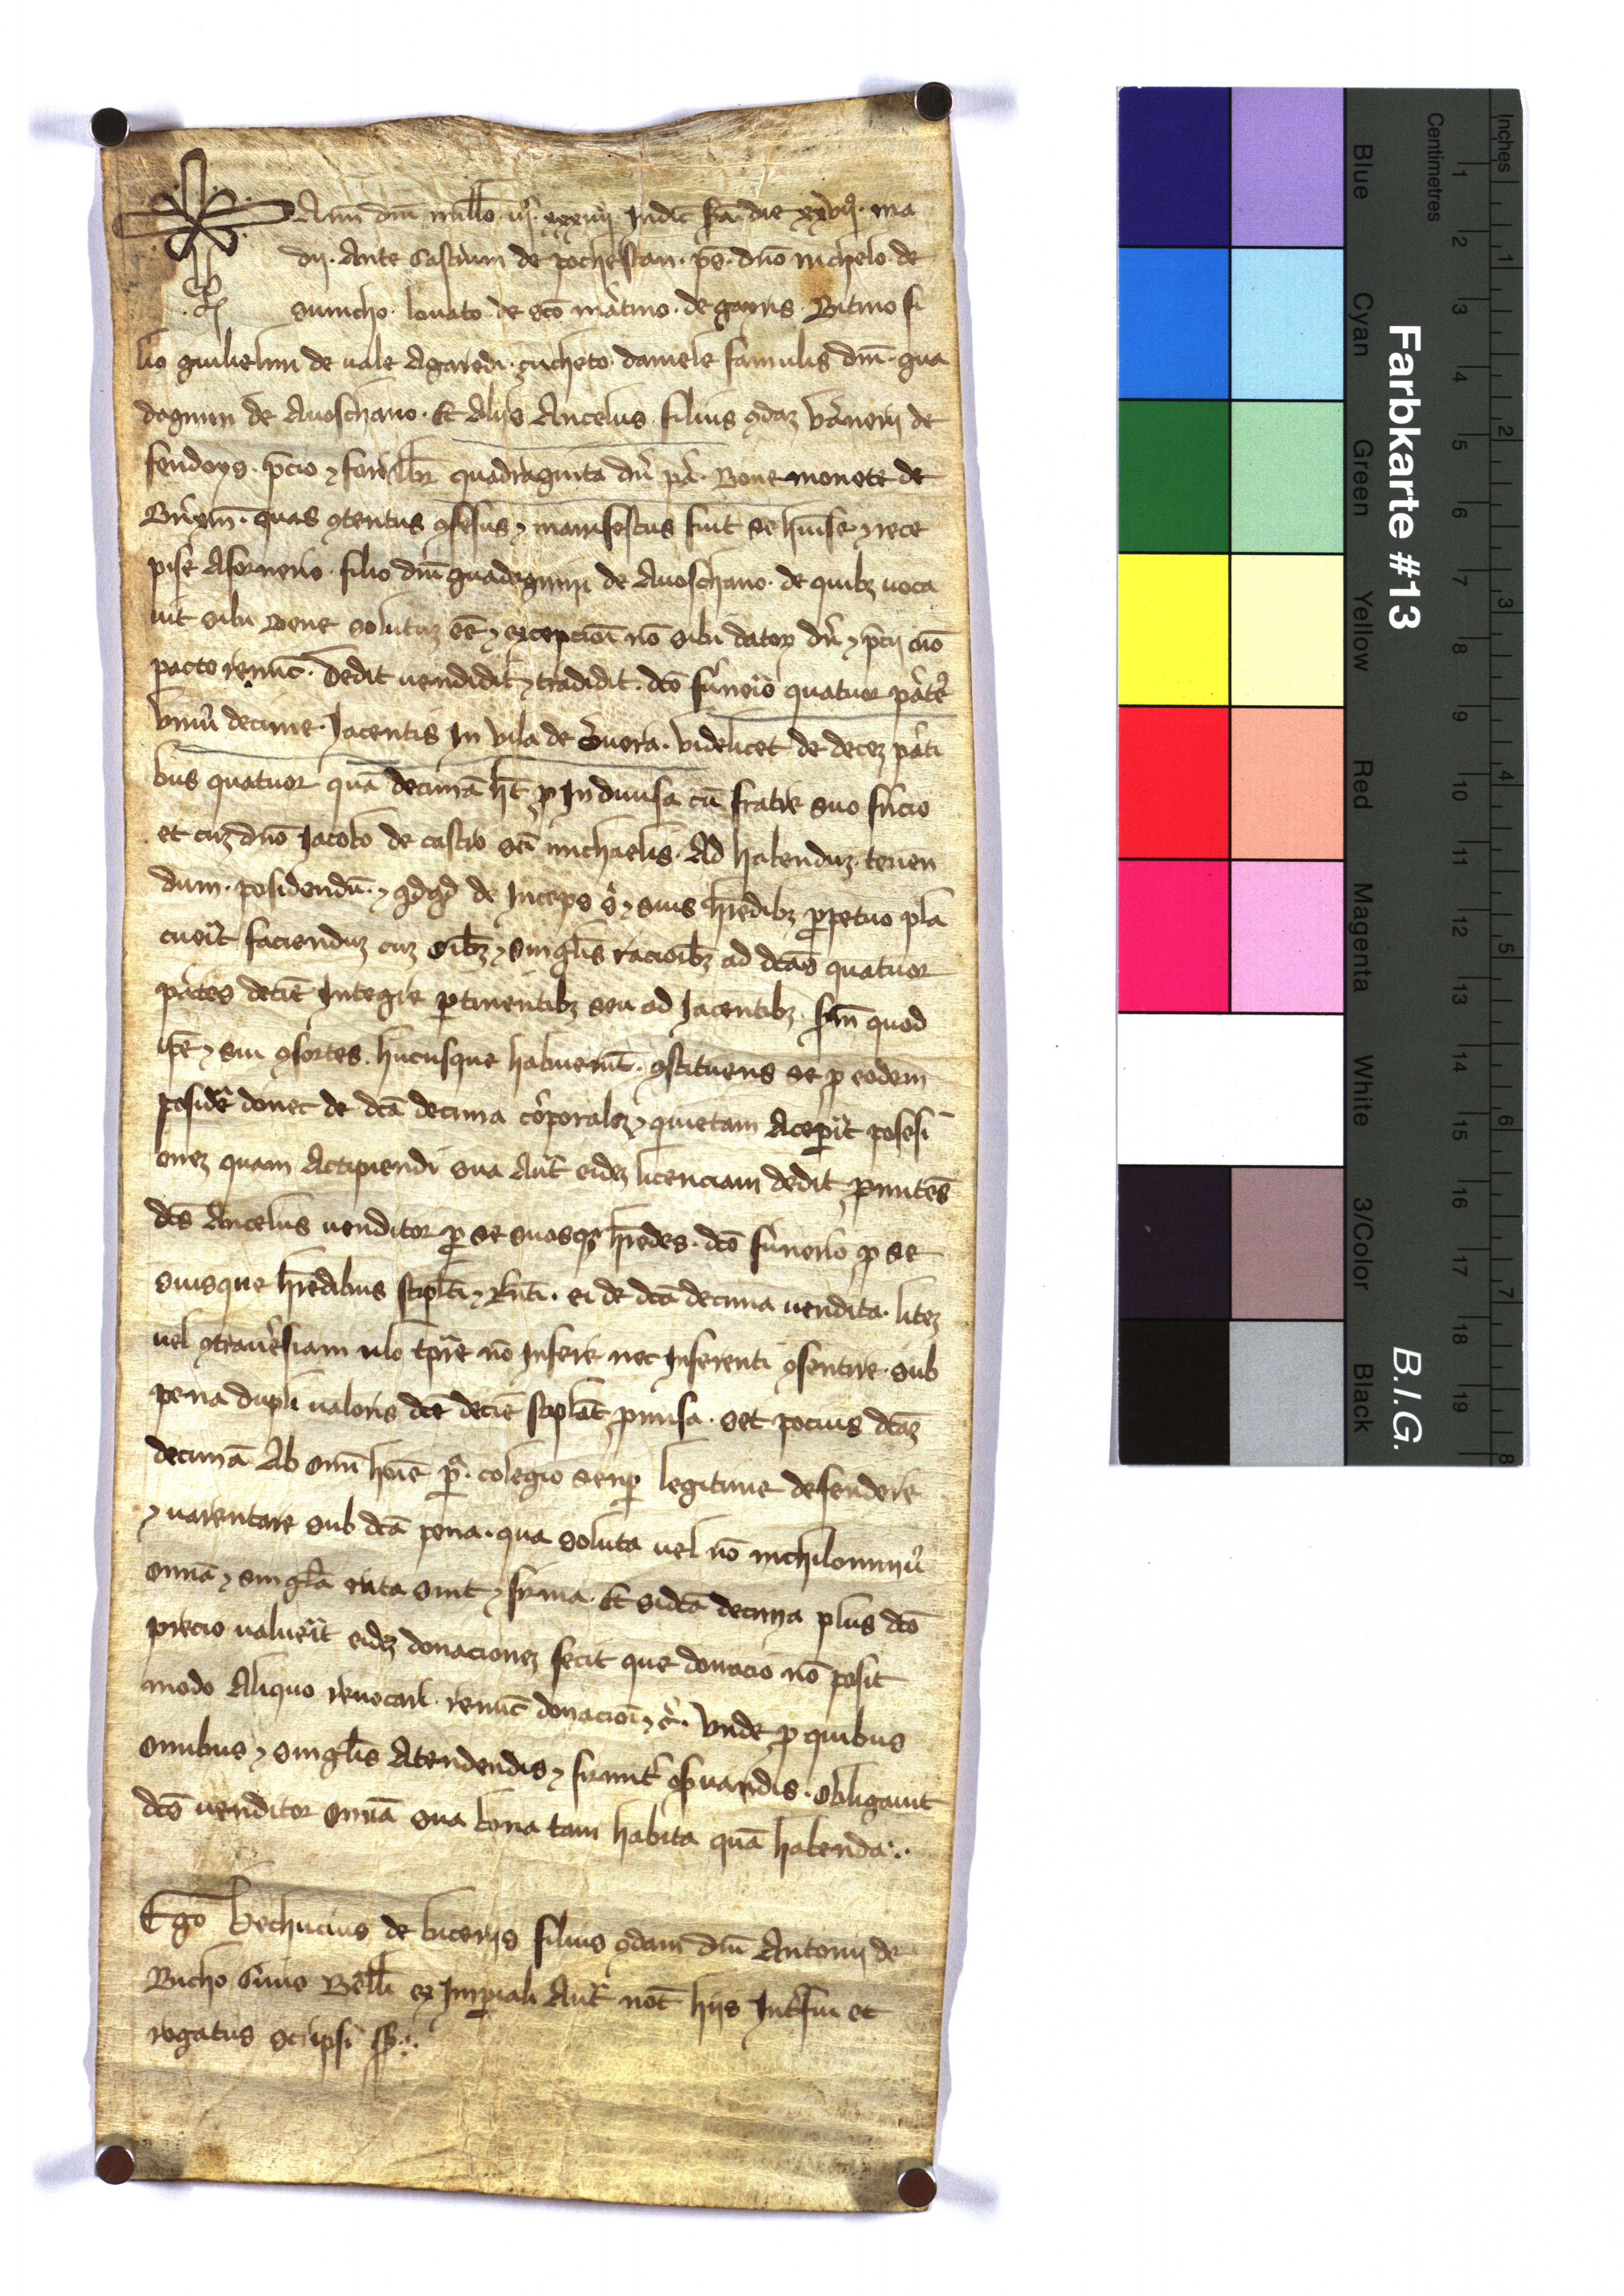 Anñ dm̃ millo. iijͨ. xxxiiij Indic̃ scd̃a. die xxvij. ma
dij. Ante Castrum de pochestan. p̃s. dño nichelo. de
suincho. lonato. de sc̃o mãtino. de gayris. Bitino fi
lio guilielmi de uale Agaredi. zucheto. daniele famulis dm̃. gua
dagnini de Auoschano. Et Alijs Ancelus filius ꝯdaꝫ Vãnerij de
fendoys. p̃cio ⁊ foñ llbr̃ quadraginta dñ pã. Bone monete de
Brixin̄. quas ꝯtentus ꝯfesus ⁊ manifestus fuit se hũise ⁊ rece
pise Afornerio. filio dm̃ guadagnini de Auoschano. de quibꝫ uoca
uit sibi Bene solutuꝫ eẽ ⁊ excepcioĩ nõ sibi datoꝝ dñ ⁊ p̃cij cũo
pacto renũc̃. Dedit uendidit ⁊ tradidit. dc̃o fũnerio quatuor pãtes
Vniũ decime. Jacentis In Vila de Cruera. Videlicet de deceꝫ pãti
bus quatuor quã decimã hẽt ꝑ Indiuisa cũ fratre suo fĩcio
et cuꝫ dño Jacobo de castro sc̃i michaelis. Ad habenduꝫ. tenen
dum. posidendũ. ⁊ qd̃qd̃ de Inceps ei ⁊ suis hr̃edibꝫ ꝑpetuo pla
cueĩt faciendũ cuꝫ oĩbꝫ ⁊ singl̃is racioĩbꝫ ad dc̃as quatuor
pãtes decĩe Integre ꝑtinentibꝫ seu ad Jacentibꝫ. scd̃m quod
ip̃e ⁊ sui ꝯsortes. hucusque habuerũt. ꝯstituens se ꝓ eodem
posidẽ donec de dc̃a decima cõporaleꝫ ⁊ quietam Aceꝑĩt posesi
oneꝫ quam Accipiendi sua Aũt eideꝫ licenciam dedit ꝓmitẽs
dc̃s Ancelus uenditor ꝑ se suosqꝫ hr̃edes. dc̃o fũnerio ꝓ se
suisque hr̃edibus stipl̃ti ⁊ Rñti. ei de dc̃a decima uendita. liteꝫ
uel ꝯtrauẽsiam ulo tp̃re nõ Inferre nec Inferenti ꝯsentire. sub
pena dupli ualoris dc̃e decĩe stipl̃at ꝓmisa. set pocius dc̃aꝫ
decimã Ab omĩ hoĩe ꝑã. colegio senp̱ legitime defendere
⁊ uarentare sub dc̃a pena. qua soluta uel nõ nichilominũ
omĩa ⁊ singl̃a rata sint ⁊ firma. Et si dc̃a decima plus dc̃o
precio ualueĩt eideꝫ donacioneꝫ fecit que donacio nõ posit
modo Aliquo reuocari. renũc̃ donacioĩ ⁊ c̃. Vnde ꝓ quibus
omibus ⁊ singl̃is Atendendis ⁊ firmit̃ obs̃uandis. obligauit
dc̃s uenditor omĩa sua bona tam habita quã habenda:.
Ego Bechucius de buceriis filius ꝯdam dm̃ Antonij de
Bucho Ciuis Belli ex Imꝑiali Aut̃ not̃ hijs Int̃fui et
rogatus scripsi
Farbkarte #13
B.I.G.
Blue
Cyan
Green
Yellow
Red
Magenta
White
3/Color
Black
Centimetres
Inches
1 2 3 4 5 6 7 8 9 10 11 12 13 14 15 16 17 18 19
1 2 3 4 5 6 7 8